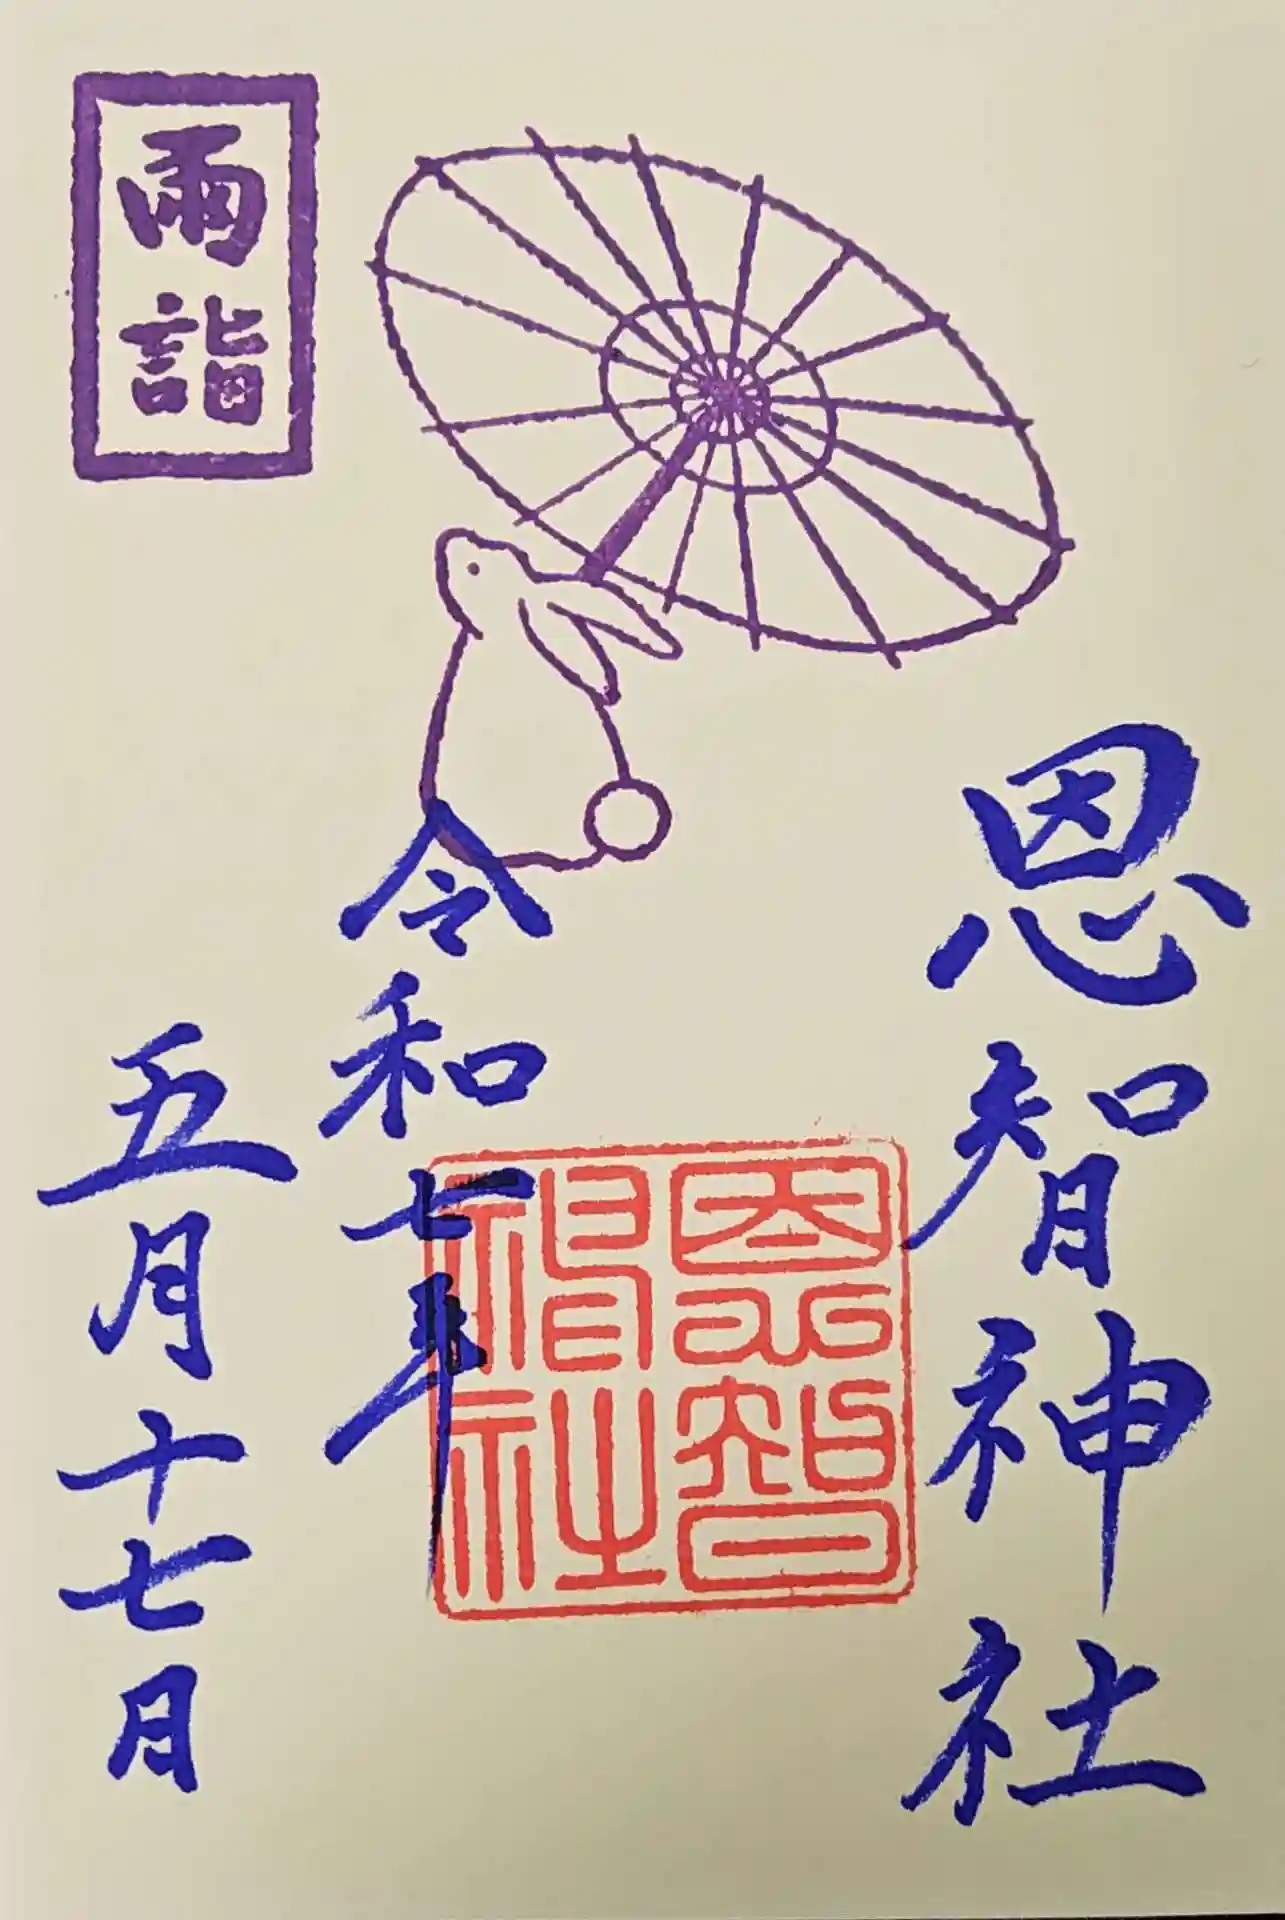 恩智神社
雨詣
令和七年
五月十七日
恩智
神社